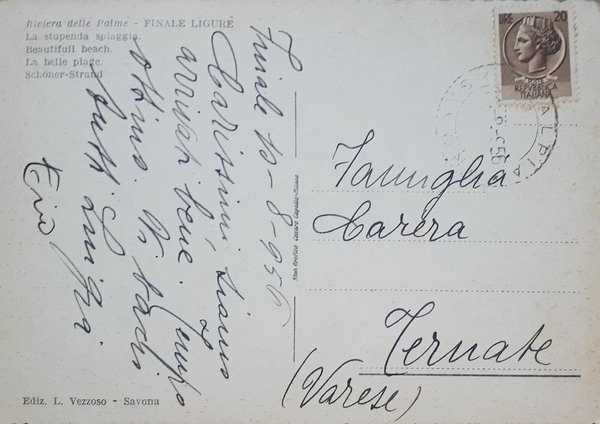 Riviera delle Palme - FINALE LIGURE
La stupenda spiaggia.
Beautifull beach.
La belle plage.
Schöner-Strand
LIRE 20
REPUBBLICA
ITALIANA
Finale 10-8-956
Carissimi, siamo
arrivati bene. Tempo
ottimo. Vi bacio
tutti Luigi
Famiglia
Carera
Ternate
(Varese)
Ediz. L. Vezzoso - Savona